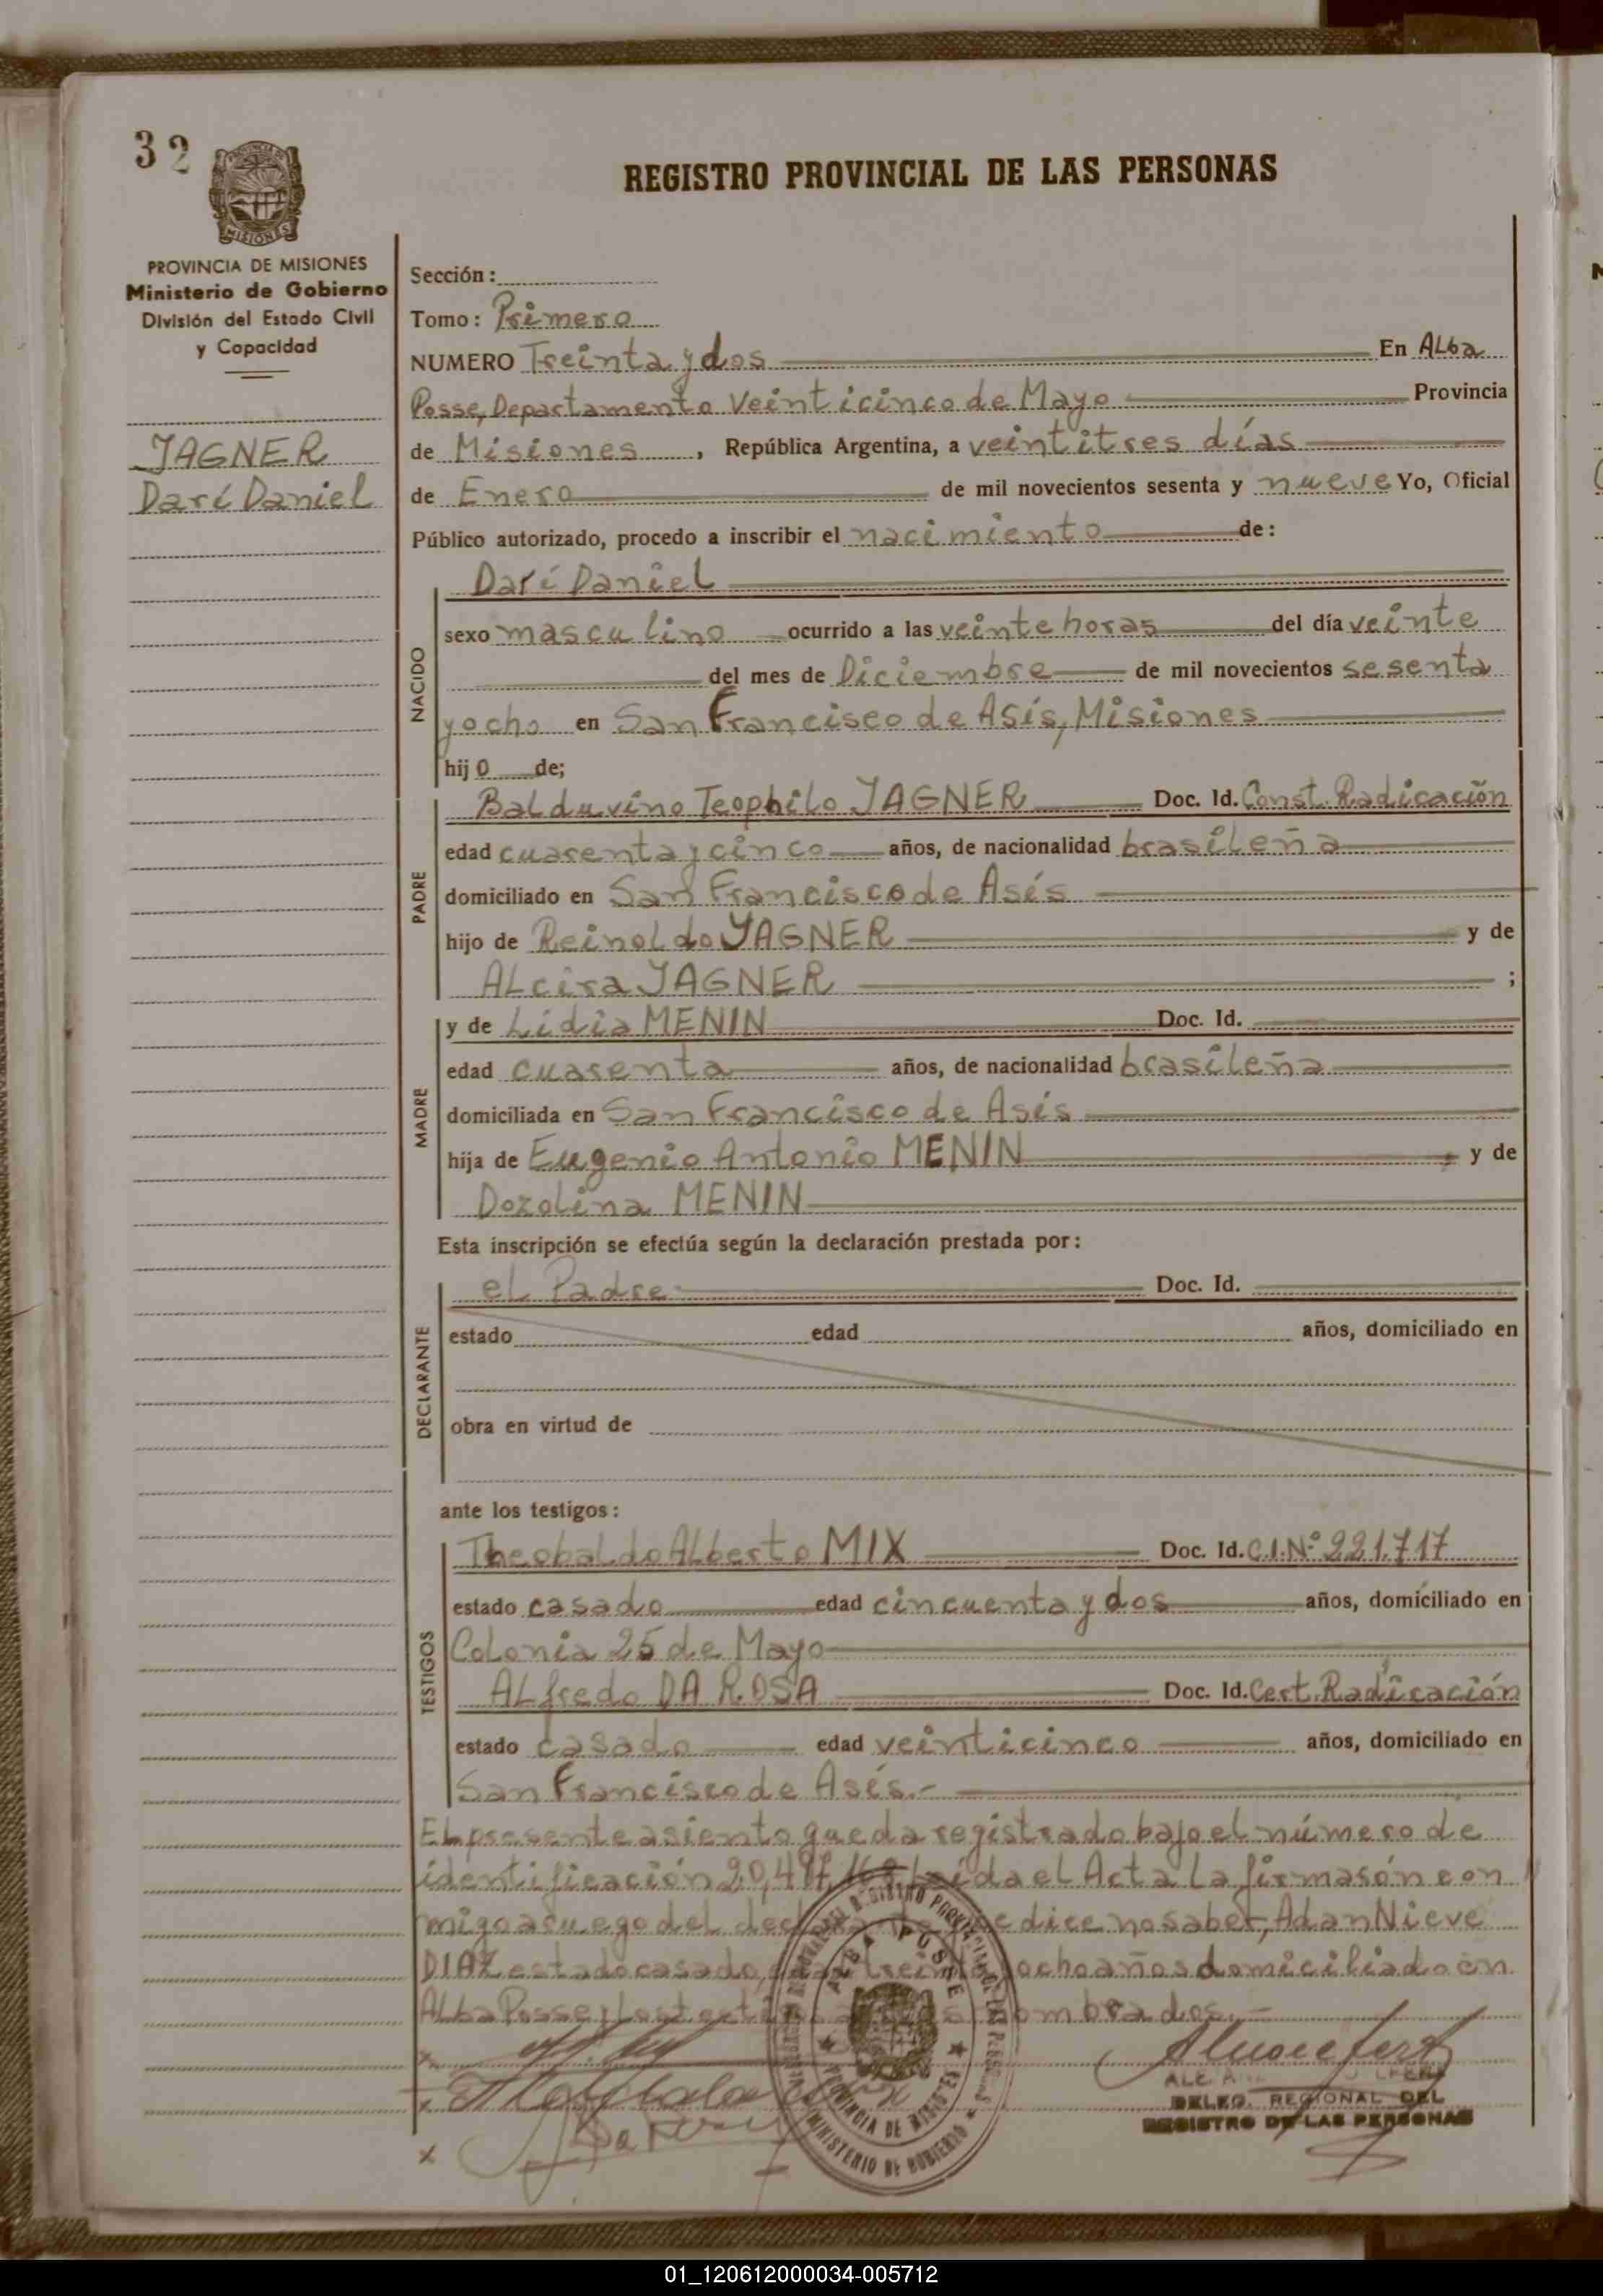 32
REGISTRO PROVINCIAL DE LAS PERSONAS
MISIONES
PROVINCIA DE MISIONES
Ministerio de Gobierno
División del Estado Civil
y Capacidad
JAGNER
Darí Daniel
Sección:
Tomo: Primero
NUMERO Treinta y dos En Alba
Posse, Departamento Veinticinco de Mayo Provincia
de Misiones, República Argentina, a veintitres días
de Enero de mil novecientos sesenta y nueve Yo, Oficial
Público autorizado, procedo a inscribir el nacimiento de:
NACIDO
Darí Daniel
sexo masculino ocurrido a las veinte horas del día veinte
del mes de Diciembre de mil novecientos sesenta
y ocho en San Francisco de Asís, Misiones
hijo de;
PADRE
Balduvino Teophilo JAGNER Doc. Id. Const. Radicación
edad cuarenta y cinco años, de nacionalidad brasileña
domiciliado en San Francisco de Asís
hijo de Reinoldo JAGNER y de
Alcira JAGNER ;
MADRE
y de Lidia MENIN Doc. Id.
edad cuarenta años, de nacionalidad brasileña
domiciliada en San Francisco de Asís
hija de Eugenio Antonio MENIN y de
Dozolina MENIN
Esta inscripción se efectúa según la declaración prestada por:
DECLARANTE
el Padre Doc. Id.
estado edad años, domiciliado en
obra en virtud de
ante los testigos:
TESTIGOS
Theobaldo Alberto MIX Doc. Id. C.I.Nº 221.717
estado casado edad cincuenta y dos años, domiciliado en
Colonia 25 de Mayo
Alfredo DA ROSA Doc. Id. Cert. Radicación
estado casado edad veinticinco años, domiciliado en
San Francisco de Asís.-
El presente asiento queda registrado bajo el número de
identificación Leída el Acta la firmarón con
migo a ruego del dice no saber, Adan Nieve
DIAZ estado casado, ocho años domiciliado en
Alba Posse y los
ALBA POSSE
PROVINCIA DE MISIONES
MINISTERIO DE GOBIERNO
DELEG. REGIONAL DEL
REGISTRO DE LAS PERSONAS
01_120612000034-005712